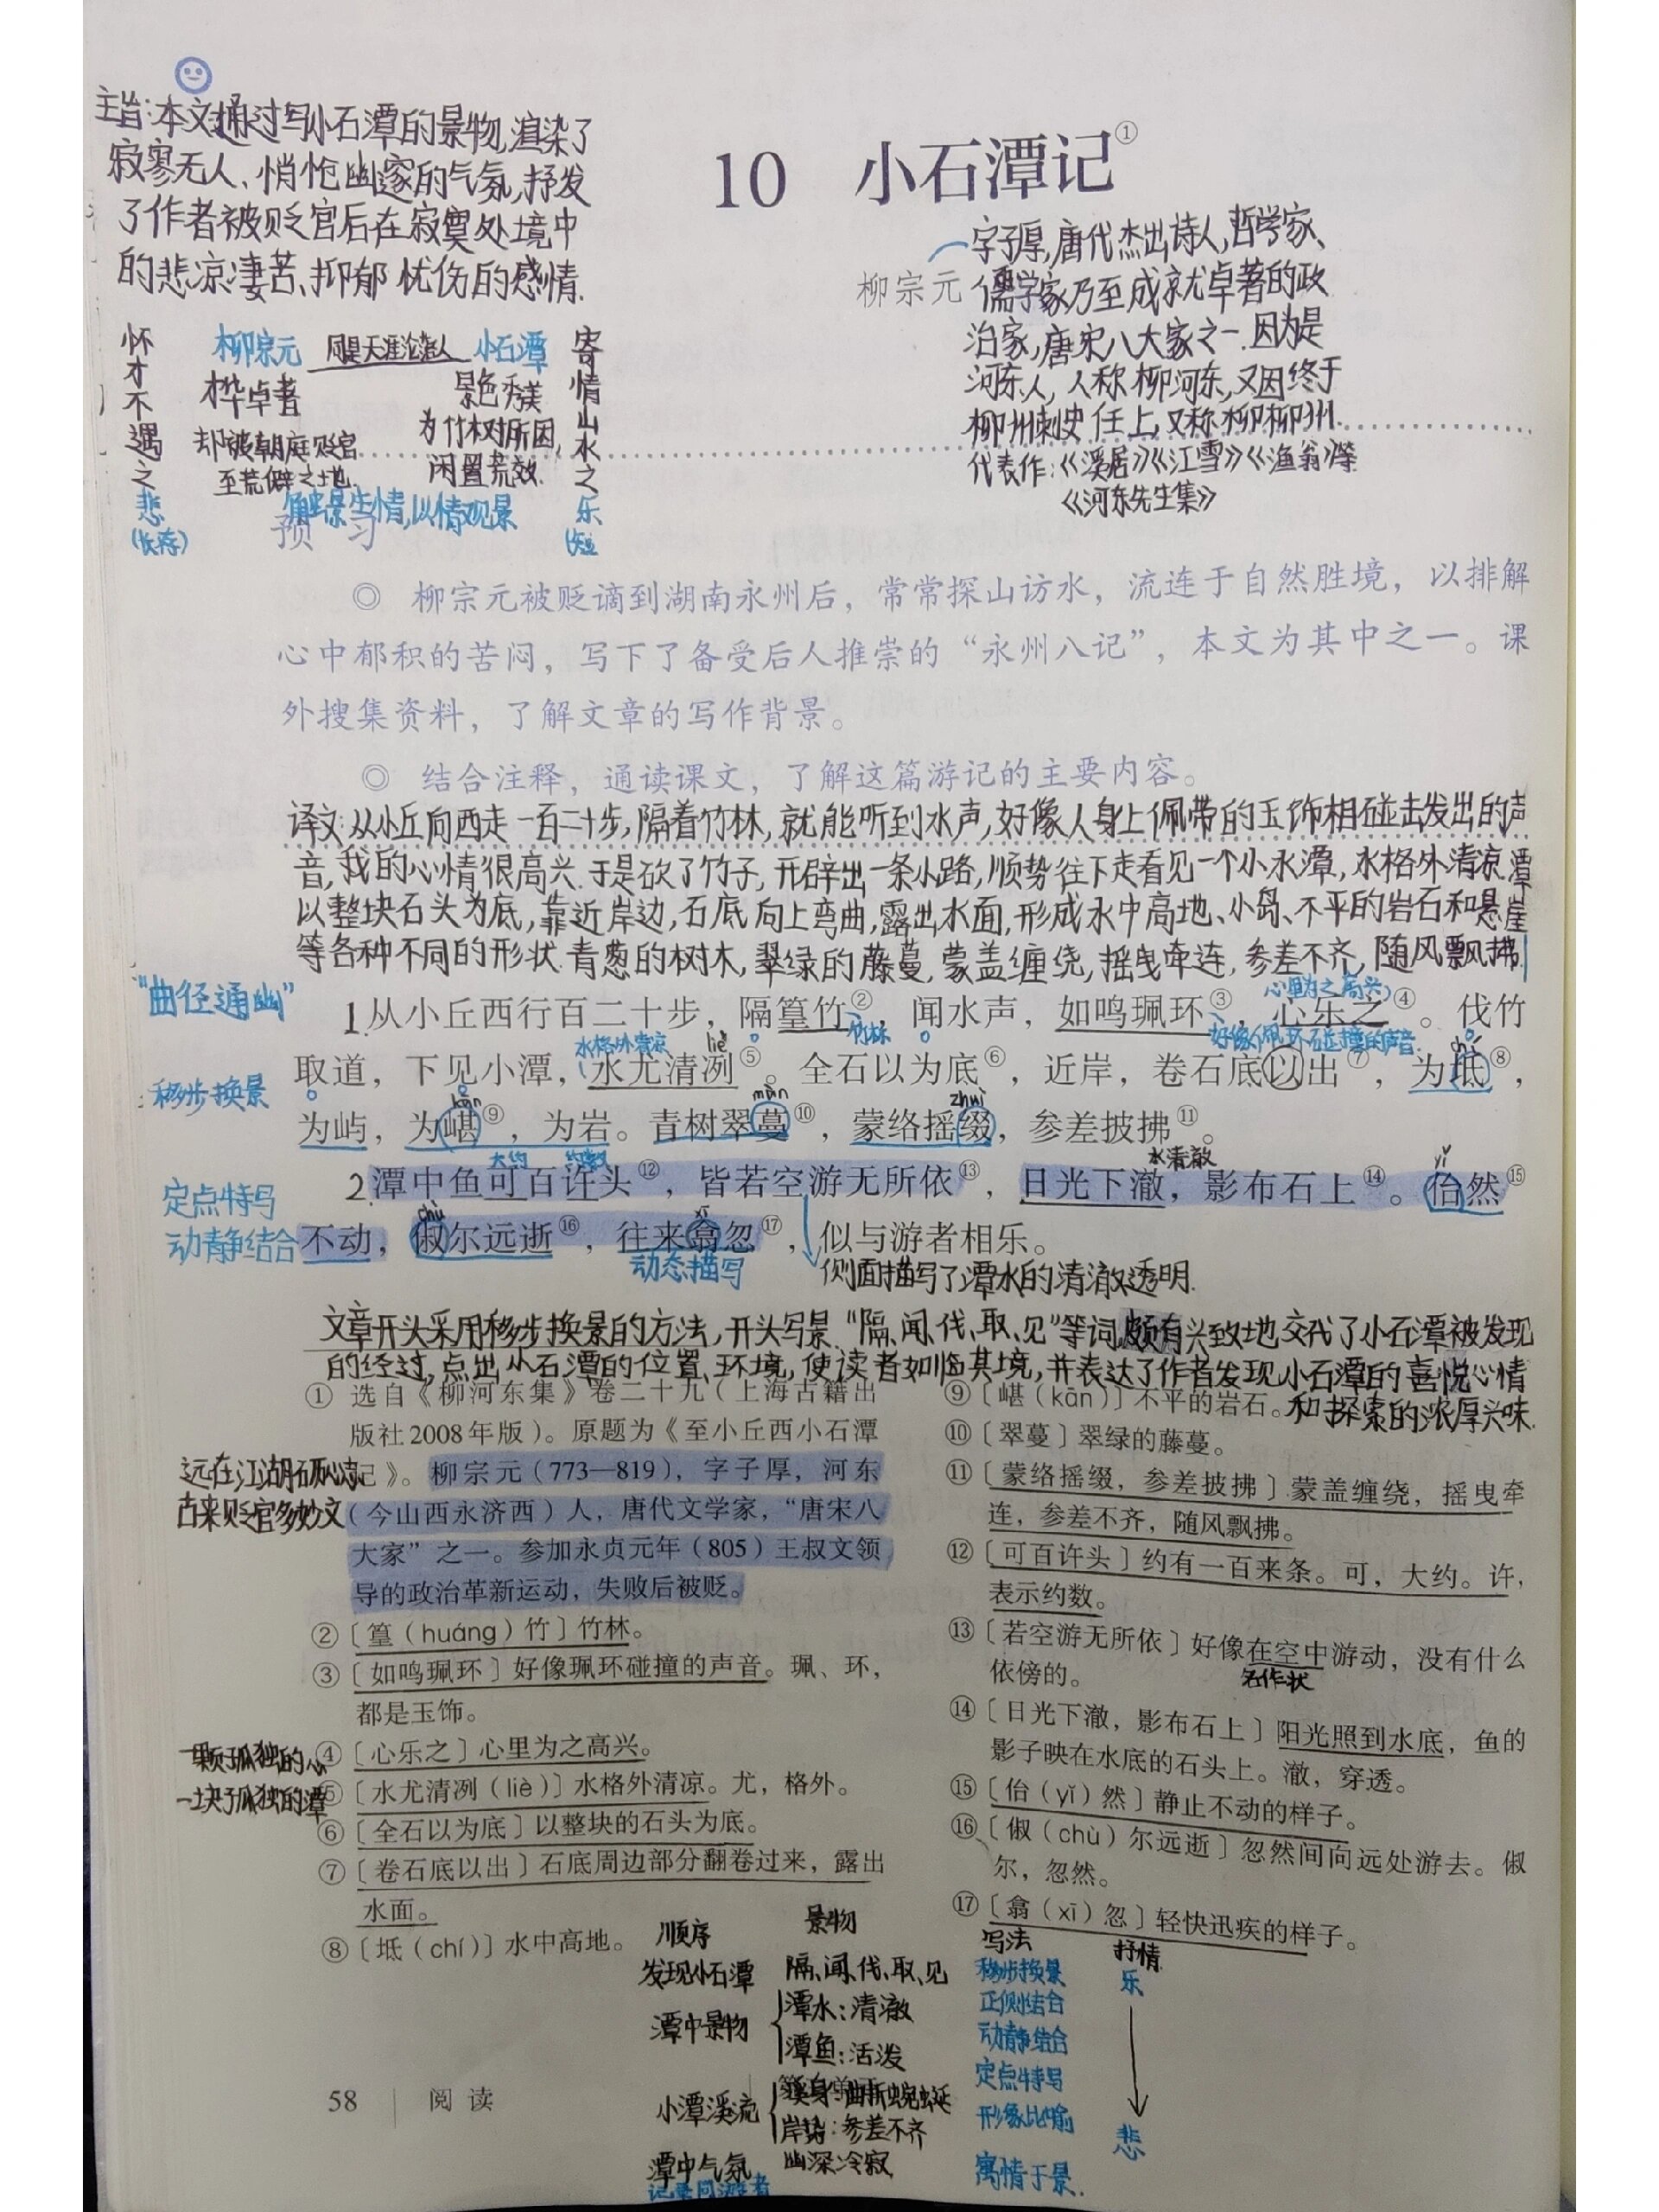 主旨:本文通过写小石潭的景物,渲染了
寂寥无人、悄怆幽邃的气氛,抒发
了作者被贬官后在寂寞处境中
的悲凉凄苦、抑郁忧伤的感情.
10 小石潭记①
柳宗元
字子厚,唐代杰出诗人,哲学家、
儒学家乃至成就卓著的政
治家,唐宋八大家之一.因为是
河东人,人称柳河东,又因终于
柳州刺史任上,又称柳柳州.
代表作:《溪居》《江雪》《渔翁》等
《河东先生集》
怀才不遇之悲
(长存)
柳宗元 同是天涯沦落人 小石潭
才华卓著 景色秀美
却被朝庭贬官 为竹树所困,
至荒僻之地. 闲置荒效.
触景生情,以情观景
寄情山水之乐
(短
预习
◎ 柳宗元被贬谪到湖南永州后,常常探山访水,流连于自然胜境,以排解
心中郁积的苦闷,写下了备受后人推崇的“永州八记”,本文为其中之一。课
外搜集资料,了解文章的写作背景。
◎ 结合注释,通读课文,了解这篇游记的主要内容。
译文:从小丘向西走一百二十步,隔着竹林,就能听到水声,好像人身上佩带的玉饰相碰击发出的声
音,我的心情很高兴.于是砍了竹子,开辟出一条小路,顺势往下走看见一个小水潭,水格外清凉.潭
以整块石头为底,靠近岸边,石底向上弯曲,露出水面,形成水中高地、小岛、不平的岩石和悬崖
等各种不同的形状.青葱的树木,翠绿的藤蔓,蒙盖缠绕,摇曳牵连,参差不齐,随风飘拂.
“曲径通幽”
心里为之高兴
1.从小丘西行百二十步,隔篁竹②,闻水声,如鸣珮环③,心乐之④。伐竹
水格外清凉 liè 竹林 好像佩环碰撞的声音. chí
取道,下见小潭,水尤清冽⑤。全石以为底⑥,近岸,卷石底以出⑦,为坻⑧,
移步换景
kān màn zhuì
为屿,为嵁⑨,为岩。青树翠蔓⑩,蒙络摇缀,参差披拂⑪。
大约 约数 水清澈 yǐ
2.潭中鱼可百许头⑫,皆若空游无所依⑬,日光下澈,影布石上⑭。佁然⑮
定点特写
动静结合
chù xī
不动,俶尔远逝⑯,往来翕忽⑰,似与游者相乐。
动态描写
侧面描写了潭水的清澈透明.
文章开头采用移步换景的方法,开头写景.“隔、闻、伐、取、见”等词颇有兴致地交代了小石潭被发现
的经过,点出小石潭的位置、环境,使读者如临其境,并表达了作者发现小石潭的喜悦心情
和探索的浓厚兴味.
① 选自《柳河东集》卷二十九(上海古籍出
版社2008年版)。原题为《至小丘西小石潭
记》。柳宗元(773—819),字子厚,河东
(今山西永济西)人,唐代文学家,“唐宋八
大家”之一。参加永贞元年(805)王叔文领
导的政治革新运动,失败后被贬。
古来贬官多妙文
②〔篁(huáng)竹〕竹林。
③〔如鸣珮环〕好像珮环碰撞的声音。珮、环,
都是玉饰。
一颗孤独的心
一块孤独的潭
④〔心乐之〕心里为之高兴。
⑤〔水尤清冽(liè)〕水格外清凉。尤,格外。
⑥〔全石以为底〕以整块的石头为底。
⑦〔卷石底以出〕石底周边部分翻卷过来,露出
水面。
⑧〔坻(chí)〕水中高地。
⑨〔嵁(kān)〕不平的岩石。
⑩〔翠蔓〕翠绿的藤蔓。
⑪〔蒙络摇缀,参差披拂〕蒙盖缠绕,摇曳牵
连,参差不齐,随风飘拂。
⑫〔可百许头〕约有一百来条。可,大约。许,
表示约数。
⑬〔若空游无所依〕好像在空中游动,没有什么
依傍的。
名作状
⑭〔日光下澈,影布石上〕阳光照到水底,鱼的
影子映在水底的石头上。澈,穿透。
⑮〔佁(yǐ)然〕静止不动的样子。
⑯〔俶(chù)尔远逝〕忽然间向远处游去。俶
尔,忽然。
⑰〔翕(xī)忽〕轻快迅疾的样子。
顺序 景物 写法 抒情
发现小石潭 隔、闻、伐、取、见 移步换景 乐
潭中景物 潭水:清澈 正侧结合
潭鱼:活泼 动静结合
定点特写
小潭溪流 溪身:曲折蜿蜒 形象比喻
岸势:参差不齐 悲
潭中气氛 幽深冷寂 寓情于景.
记录同游者
58 阅读